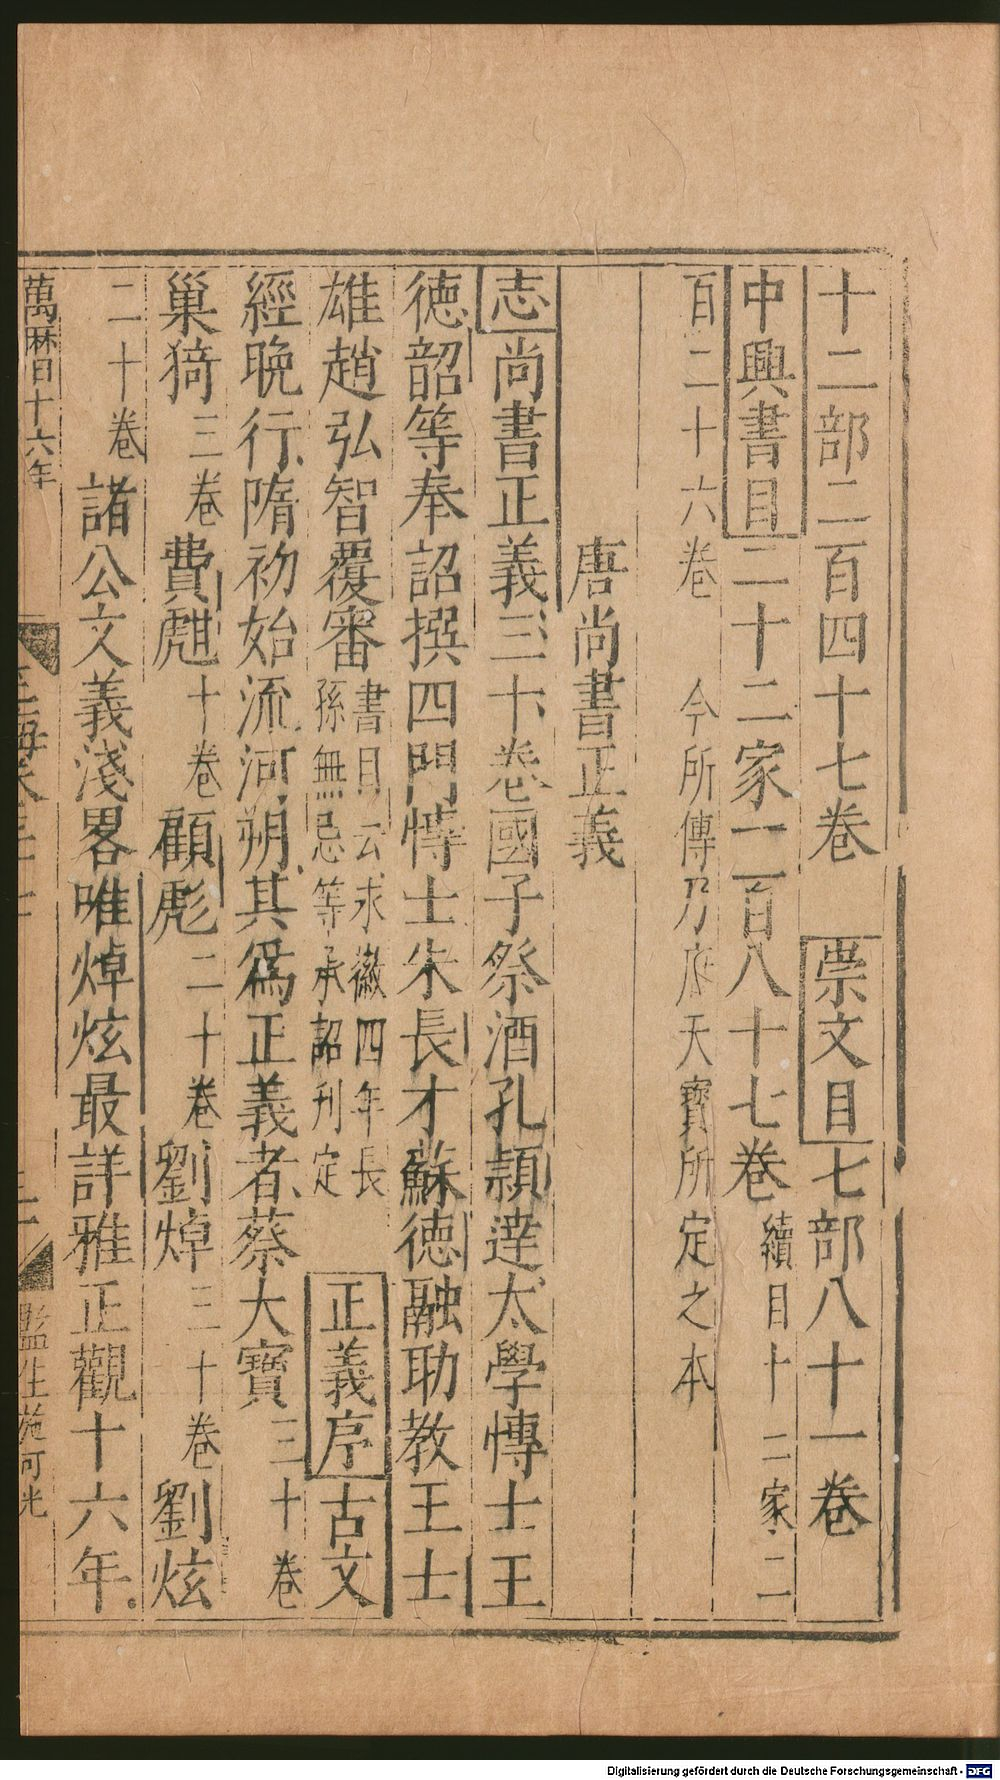 十二部二百四十七卷 崇文目七部八十一卷
中興書目二十二家一百八十七卷續目十二家二
百二十六卷 今所傳乃唐天寶所定之本
唐尚書正義
志尚書正義三十卷國子祭酒孔頴達太學博士王
德韶等奉詔撰四門博士朱長才蘇德融助教王士
雄趙弘智覆審書目云永徽四年長孫無忌等承詔刊定 正義序古文
經晚行隋初始流河朔其為正義者蔡大寶三十卷
巢猗三卷費甝十卷顧彪二十卷劉焯三十卷劉炫
二十卷諸公文義淺畧唯焯炫最詳雅正觀十六年
萬曆十六年
玉海卷三十七
監生施可光
Digitalisierung gefördert durch die Deutsche Forschungsgemeinschaft - DFG